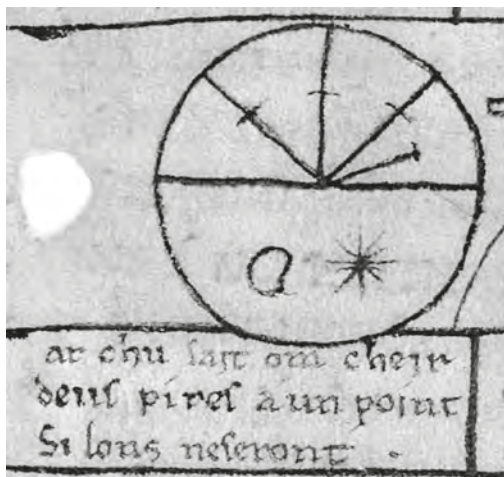 ar chu fait om cheir
deuſ pireſ a un point
Si lons neſeront .